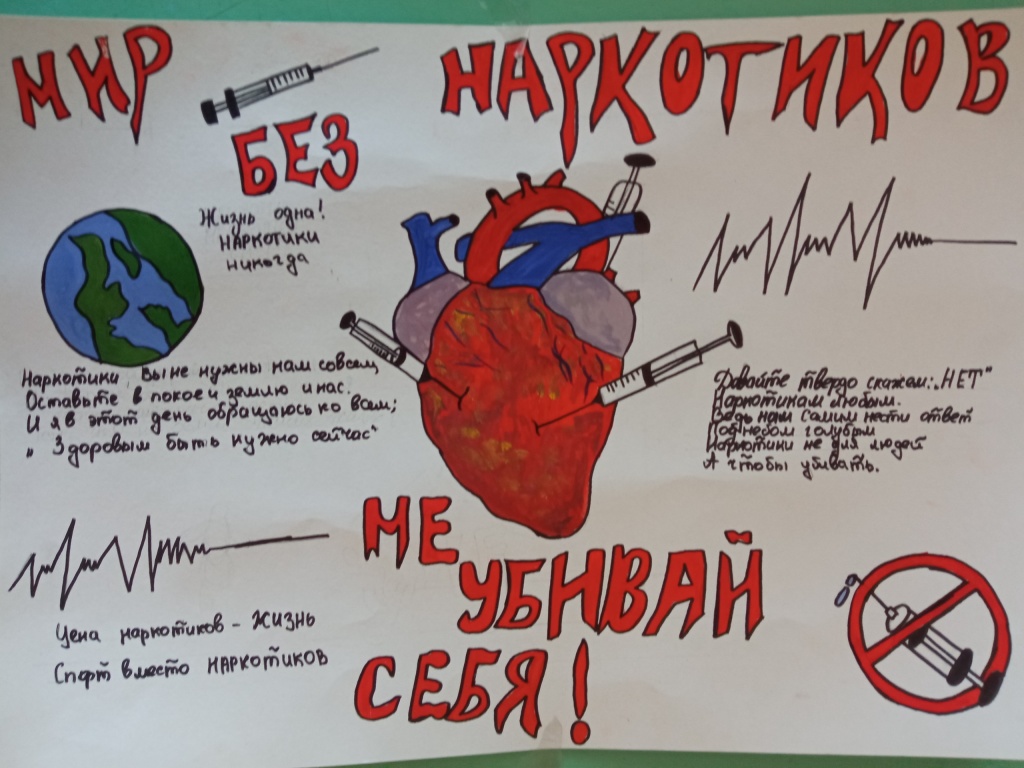 МИР
БЕЗ
НАРКОТИКОВ
Жизнь одна!
НАРКОТИКИ
никогда
Наркотики, вы не нужны нам совсем,
Оставьте в покое и землю и нас.
И я в этот день обращаюсь ко всем;
„Здоровым быть нужно сейчас"
Давайте твердо скажем: „НЕТ"
Наркотикам любым.
Ведь нам самим нести ответ
Под небом голубым
Наркотики не для людей
А чтобы убивать.
Цена наркотиков – ЖИЗНЬ
Спорт вместо НАРКОТИКОВ
НЕ
УБИВАЙ
СЕБЯ!